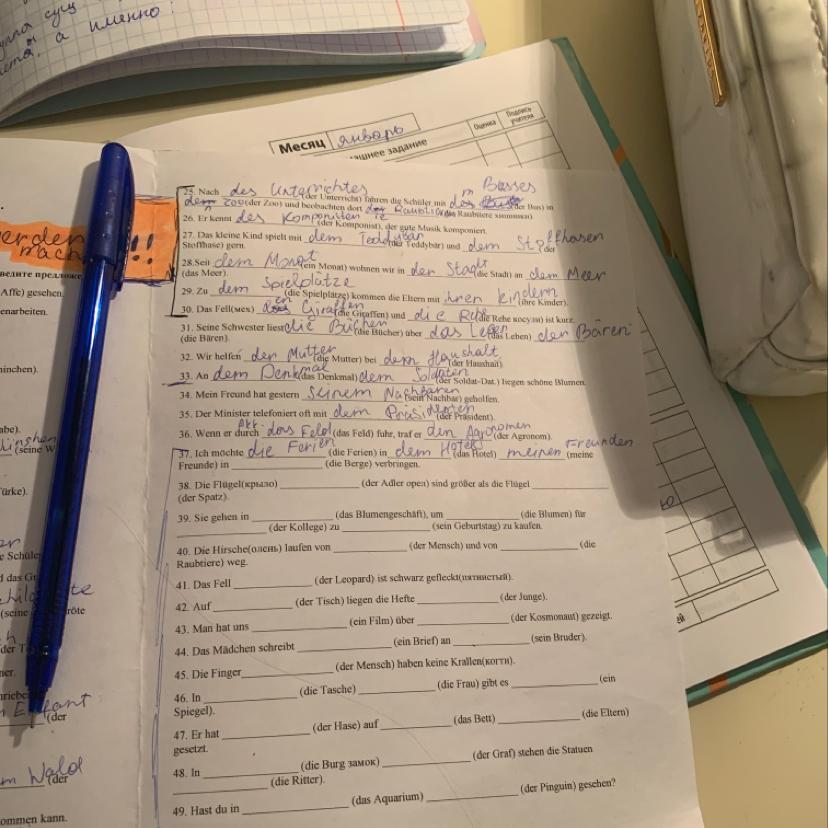 а именно:
Месяц январь
Оценка
Подпись учителя
ашнее задание
25. Nach des Unterrichtes (der Unterricht) fahren die Schüler mit (der Bus) in
Busses
(der Zoo) und beobachten dort (die Raubtiere хищники).
26. Er kennt des Komponisten (der Komponist), der gute Musik komponiert.
27. Das kleine Kind spielt mit dem Teddybär (der Teddybär) und dem Stoffhasen (der
Stoffhase) gern.
28. Seit dem Monat (ein Monat) wohnen wir in der Stadt (die Stadt) an dem Meer
(das Meer).
29. Zu dem Spielplätze (die Spielplätze) kommen die Eltern mit ihren Kindern (ihre Kinder).
30. Das Fell(мех) Giraffen (die Giraffen) und die Rehe (die Rehe косули) ist kurz.
31. Seine Schwester liest die Büchen (die Bücher) über das Leben (das Leben) der Bären
(die Bären).
32. Wir helfen der Mutter (die Mutter) bei dem Haushalt (der Haushalt).
33. An dem Denkmal (das Denkmal) dem Soldaten (der Soldat-Dat.) liegen schöne Blumen.
34. Mein Freund hat gestern seinem Nachbaren (sein Nachbar) geholfen.
35. Der Minister telefoniert oft mit dem Präsidenten (der Präsident).
Akk.
36. Wenn er durch das Feld (das Feld) fuhr, traf er den Agronomen (der Agronom).
37. Ich möchte die Ferien (die Ferien) in dem Hotel (das Hotel) meinen Freunden (meine
Freunde) in (die Berge) verbringen.
38. Die Flügel(крыло) (der Adler орел) sind größer als die Flügel
(der Spatz).
39. Sie gehen in (das Blumengeschäft), um (die Blumen) für
(der Kollege) zu (sein Geburtstag) zu kaufen.
40. Die Hirsche(олень) laufen von (der Mensch) und von (die
Raubtiere) weg.
41. Das Fell (der Leopard) ist schwarz gefleckt(пятнистый).
42. Auf (der Tisch) liegen die Hefte (der Junge).
43. Man hat uns (ein Film) über (der Kosmonaut) gezeigt.
44. Das Mädchen schreibt (ein Brief) an (sein Bruder).
45. Die Finger (der Mensch) haben keine Krallen(когти).
46. In (die Tasche) (die Frau) gibt es (ein
Spiegel).
47. Er hat (der Hase) auf (das Bett) (die Eltern)
gesetzt.
48. In (die Burg замок) (der Graf) stehen die Statuen
(die Ritter).
49. Hast du in (das Aquarium) (der Pinguin) gesehen?
erden
mach !!
ведите предложе
Affe) gesehen.
enarbeiten.
ninchen).
abe).
(seine W
ürke).
e Schüle
d das Gr
(seine röte
der T
ner.
hriebe
(der
m Wald
(der
ommen kann.